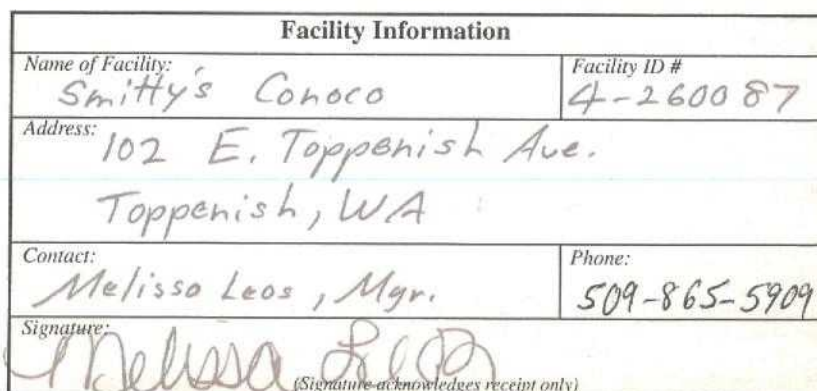 Facility Information
Name of Facility: Facility ID #
Smitty's Conoco 4-260087
Address: 102 E. Toppenish Ave.
Toppenish, WA
Contact: Phone:
Melissa Leos, Mgr. 509-865-5909
Signature:
Melissa Leos
(Signature acknowledges receipt only)